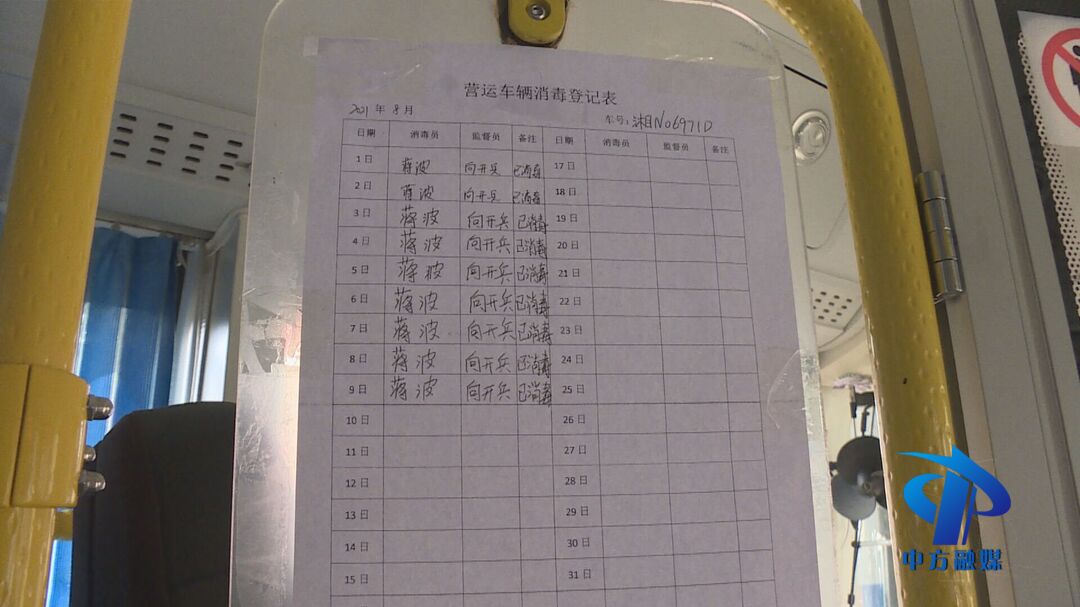 营运车辆消毒登记表
2021 年 8 月 车号:湘N06971D
日期 消毒员 监督员 备注 日期 消毒员 监督员 备注
1 日 蒋波 向开兵 已消毒 17 日
2 日 蒋波 向开兵 已消毒 18 日
3 日 蒋波 向开兵 已消毒 19 日
4 日 蒋波 向开兵 已消毒 20 日
5 日 蒋波 向开兵 已消毒 21 日
6 日 蒋波 向开兵 已消毒 22 日
7 日 蒋波 向开兵 已消毒 23 日
8 日 蒋波 向开兵 已消毒 24 日
9 日 蒋波 向开兵 已消毒 25 日
10 日 26 日
11 日 27 日
12 日 28 日
13 日 29 日
14 日 30 日
15 日 31 日
中方融媒